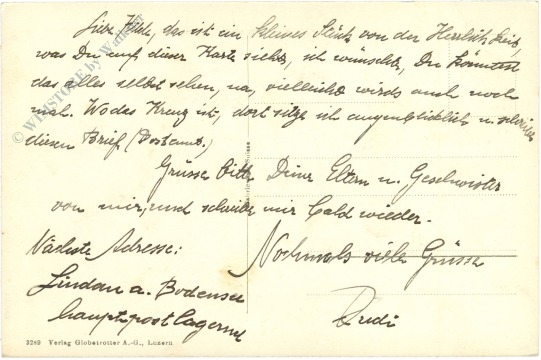 Liebe Käthe, das ist ein kleines Stück von der Herrlichkeit,
was Du auf dieser Karte siehst, ich wünschte, Du könntest
das alles selbst sehen, na, vielleicht wirds auch noch
mal. Wo das Kreuz ist, dort sitze ich augenblicklich u. schreibe
diesen Brief (Postamt.)
Grüsse bitte Deine Eltern u. Geschwister
von mir, und schreibe mir bald wieder.
Nächste Adresse: Nochmals viele Grüsse
Lindau a. Bodensee
hauptpostlagernd Rudi
3289 Verlag Globetrotter A.-G., Luzern.